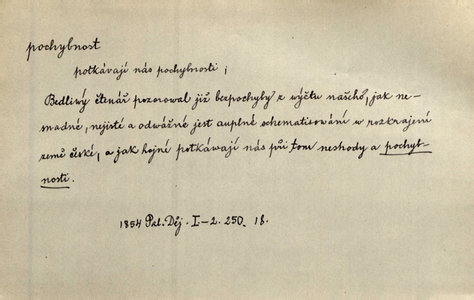 pochybnost
potkávají nás pochybnosti;
Bedliwý čtenář pozorowal již bezpochyby z wýčtu našeho, jak ne-
snadné, nejisté a odwážné jest auplné schematisowání w rozkrajení
země české, a jak hojné potkáwají nás při tom neshody a pochyb-
nosti.
1854 Pal. Děj. I-2. 250. 18.